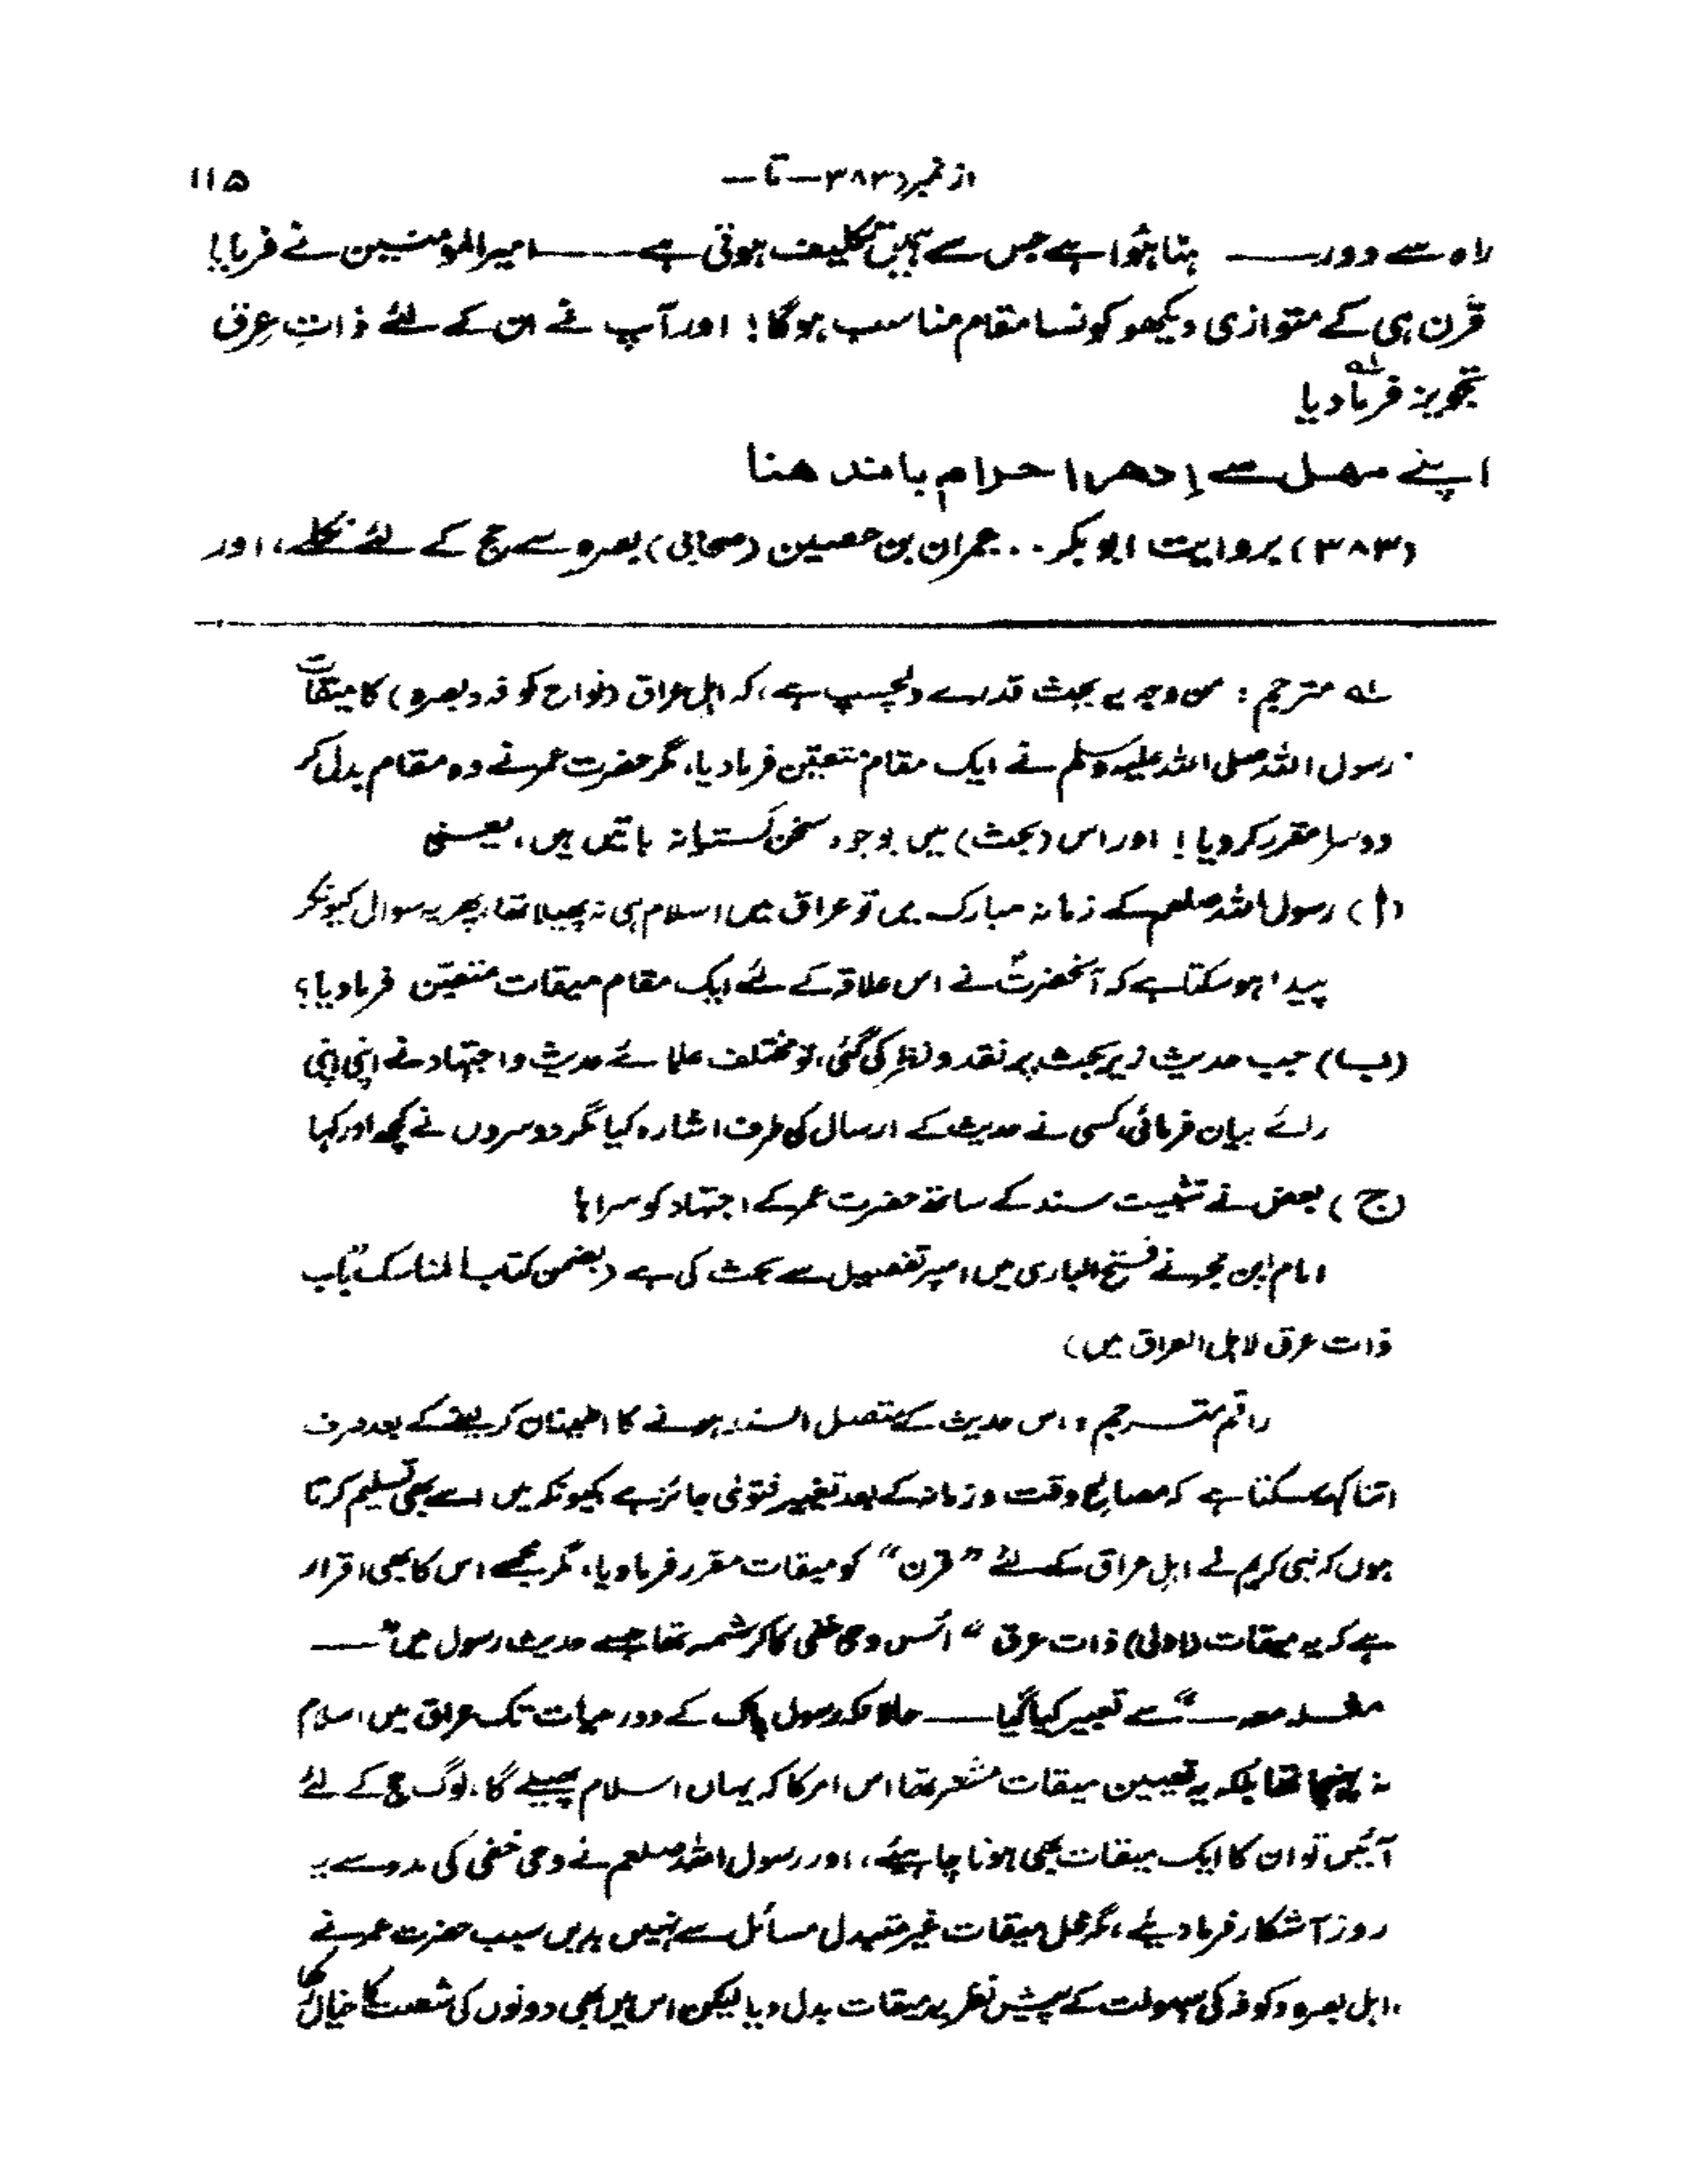 از نمبر (۳۸۳ — تا —
۱۱۵
راہ سے دور — ہٹا ہُوا ہے جس سے ہمیں تکلیف ہوتی ہے — امیرالمؤمنین نے فرمایا!
قَرن ہی کے متوازی دیکھو کونسا مقام مناسب ہوگا! اور آپ نے ان کے لئے ذاتِ عِرق
تجویز فرما دیا لہ
اپنے مهل سے اِدھر احرام باندھنا
(۳۸۳) بروایت ابوبکر .. عمران بن حصین (صحابی) بصرہ سے حج کے لئے نکلے، اور
لہ مترجم: من وجہ یہ بحث قدرے دلچسپ ہے، کہ اہل عراق (نواح کوفہ و بصرہ) کا میقات
رسول اللہ صلی اللہ علیہ وسلم نے ایک مقام متعیّن فرما دیا، مگر حضرت عمر نے وہ مقام بدل کر
دوسرا مقرر کر دیا! اور اس (بحث) میں بوجوہ سخن گسترانہ باتیں ہیں، یعنی
(أ) رسول اللہ صلعم کے زمانہ مبارک میں تو عراق میں اسلام ہی نہ پھیلا تھا، پھر یہ سوال کیونکر
پیدا ہو سکتا ہے کہ آنحضرتؐ نے اس علاقہ کے لئے ایک مقام میقات متعیّن فرما دیا؟
(ب) جب حدیث زیر بحث پر نقد و نظر کی گئی، تو مختلف علمائے حدیث و اجتہاد نے اپنی اپنی
رائے بیان فرمائی، کسی نے حدیث کے ارسال کی طرف اشارہ کیا مگر دوسروں نے کچھ اور کہا
(ج) بعض نے تثبیت سند کے ساتھ حضرت عمر کے اجتہاد کو سراہا
امام ابن حجر نے فتح الباری میں اس پر تفصیل سے بحث کی ہے (بضمن کتاب المناسک باب
ذات عرق لاہل العراق میں)
راقم مترجم، اس حدیث کے متصل السند ہونے کا اطمینان کر لینے کے بعد صرف
اتنا کہہ سکتا ہے کہ مصالح وقت و زمانہ کے بعد تغییر فتویٰ جائز ہے کیونکہ میں اسے بھی تسلیم کرتا
ہوں کہ نبی کریم نے اہل عراق کے لئے "قرن" کو میقات مقرر فرما دیا، مگر مجھے اس کا بھی اقرار
ہے کہ یہ میقات (لاولی) ذات عرق "اُس وحی خفی کا کرشمہ تھا جسے حدیث رسول میں" —
سے تعبیر کیا گیا — حالانکہ رسول پاک کے دور حیات تک عراق میں اسلام
نہ پہنچا تھا بلکہ یہ تعیین میقات مشعر تھا اس امر کا کہ یہاں اسلام پھیلے گا، لوگ حج کے لئے
آئیں تو ان کا ایک میقات بھی ہونا چاہیئے، اور رسول اللہ صلعم نے وحی خفی کی مدد سے یہ
روز آشکار فرما دیئے، مگر محل میقات غیر متبدل مسائل سے نہیں بدیں سبب حضرت عمر نے
اہل بصرہ و کوفہ کی سہولت کے پیش نظر یہ میقات بدل دیا لیکن اس میں بھی دونوں کی کا خیال رکھا